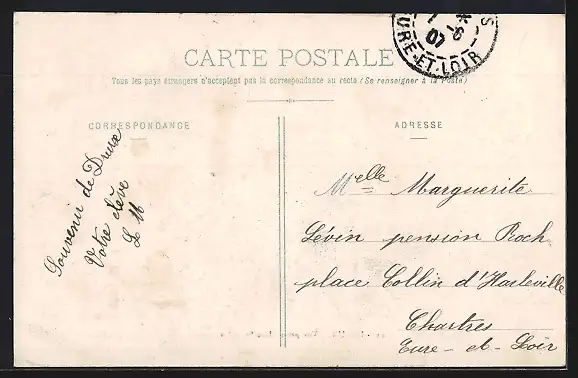 CARTE POSTALE
Tous les pays étrangers n'acceptent pas la correspondance au recto (Se renseigner à la Poste)
CORRESPONDANCE
ADRESSE
Souvenir de Dreux
Votre élève
L M
Melle Marguerite
Lévin pension Roch
place Collin d'Harleville
Chartres
Eure-et-Loir
07
EURE-ET-LOIR